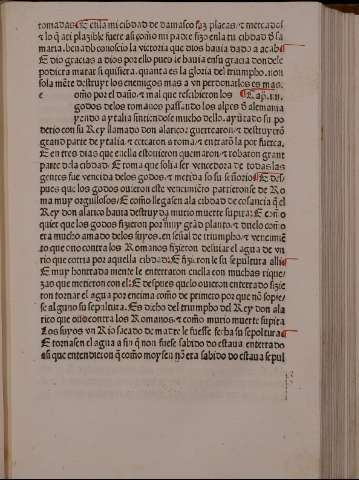 tomadas E en la mi cibdad de damasco faz plaças & mercados
& lo q̃ a ti plazible fuere asi como mi padre fizo en la tu cibdad d̃ sa
maria. benadb conoscio la victoria que dios hauia dado a acab
E dio gracias a dios por ello pues le hauia en su gracia don dele
podiera matar si quisiera. quanta es la gloria del triumpho. non
sola mẽte destruyr los enemigos mas avn perdonarlos es mas
e como por el daño & mal que rescibieron los Cap. vii.
godos de los romanos passando los alpes d̃ alemania
y endo a ytalia sintiendose mucho dello. ayũtado su po
derio con su Rey llamado don alarico: guerrearon & destruyerõ
grand parte de ytalia. & cercaron a roma & entrarõ la por fuerça.
E en tres dias que en ella estouieron quemaron & robaron grant
parte de la cibdad. E roma que solia ser vencedora de todas las
gentes fue vencida de los godos. & metida so su señorio E des
pues que los godos ouieron este vencimiẽto partieron se de Ro
ma muy orgullosos: E como llegasen a la cibdad de cosancia q̃ el
Rey don alarico hauia destruyda murio muerte supita: E como
quier que los godos fizieron por muy grãd planto & duelo como
era mucho amado de los suyos. en señal de triumpho. & vencimiẽ
to que ouo contra los Romanos fizieron desuiar el agua de vn
rio que corria por aquella cibdad: E fizieron le su sepultura alli
E muy honrrada mente le enterraron en ella con muchas rique
zas que metieron con el: E despues que lo ouieron enterrado fizie
ron tornar el agua por encima como de primero por que nõ sopie
se alguno su sepultura. Es dicho del triumpho del Rey don ala
rico que ouo contra los Romanos. & como murio muerte supita
Los suyos vn Rio sacado de madre le fuesse fecha su sepoltura
E tornasen el agua a fin q̃ non fuese sabido do estaua enterrado
asi que entendieron q̃ como moysen nõ era sabido do estaua sepul